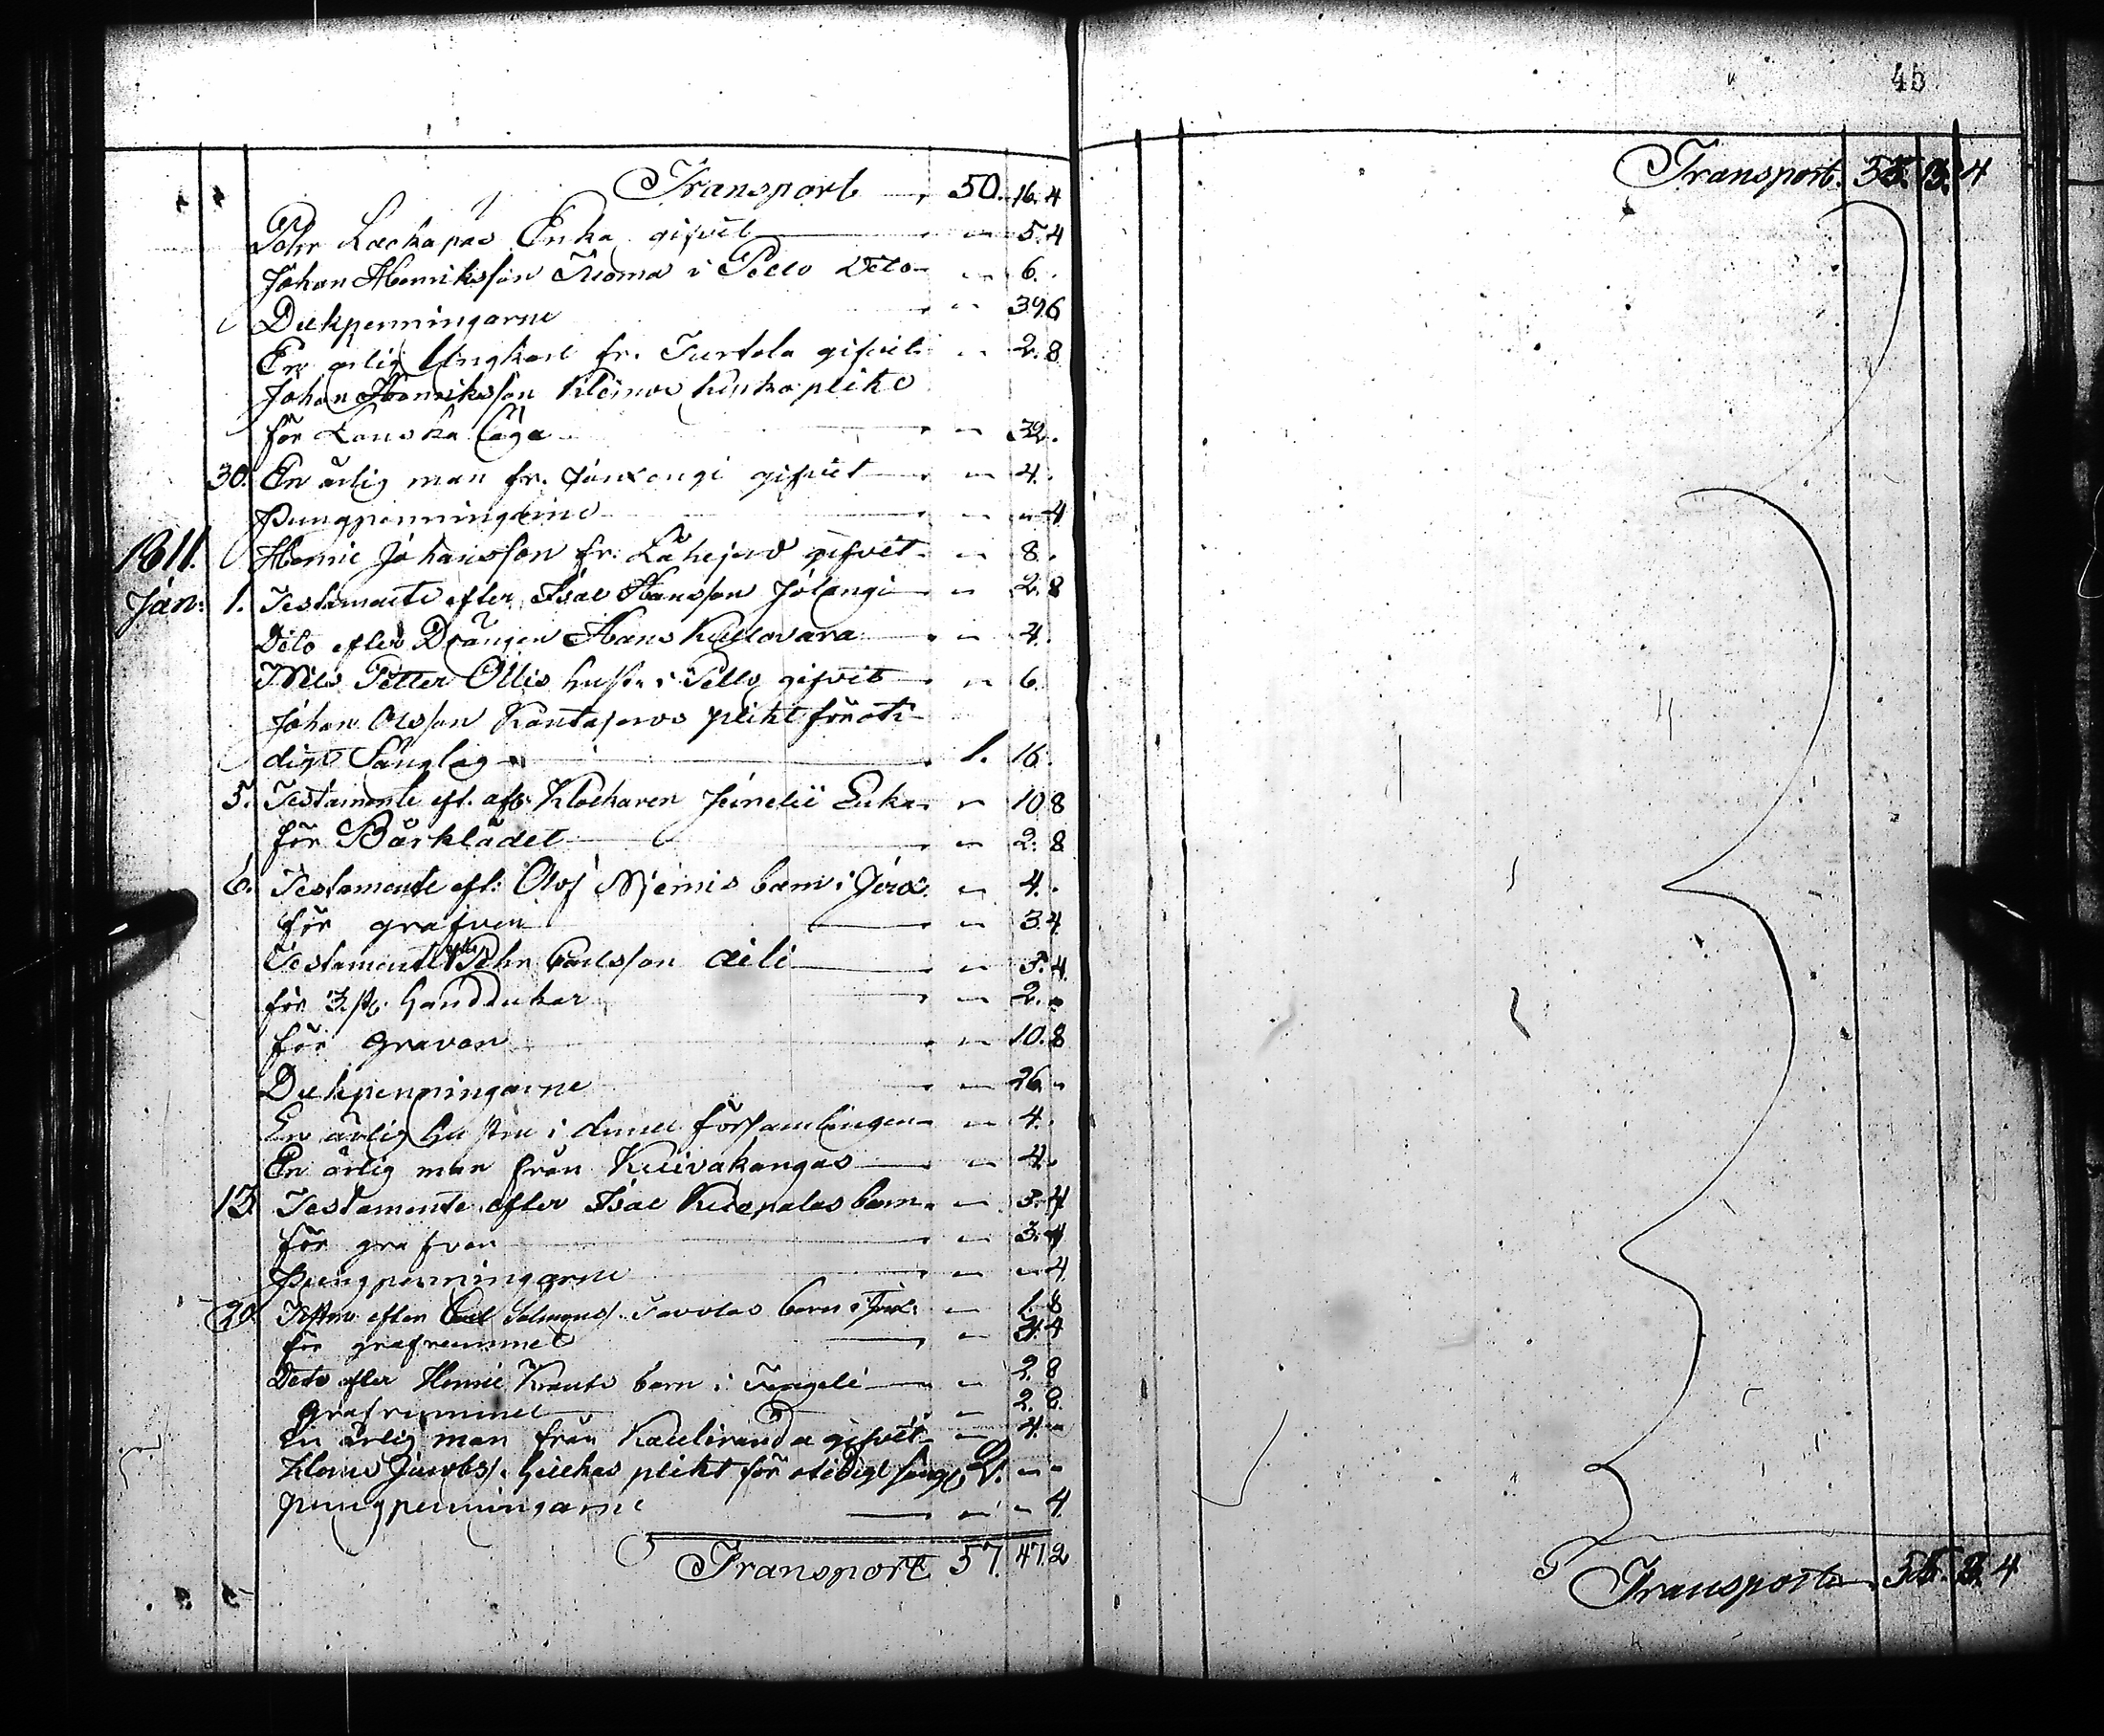 Transport 50. 16. 4
Pehr Lackapas Enka gifvit " 5. 4
Johan Henriksson Tuoma i Pello Dito " 6.
Duckpenningarne " 39. 6
En ärlig Ungkarl fr. Turtola gifvit " 2. 8
Johan Henriksson plikt
för Lönska läge " 32.
30. En ärlig man fr. Juoxengi gifvit " 4.
Pungpenningarne " " 4
1811. Henric Johansson fr. gifvit " 8.
Jan: 1. Testamente efter Isac Hansson Jolangi " 2. 8
Dito efter Drängen Hans Kullovara " 4.
Nils Petter Ollis hustru i Pello gifvit " 6.
Johan Olsson Rantajervs plikt för oti-
digt Sänglag 1. 16.
5. Testamente eft. afl. Klockaren Junelii Enka " 10. 8
för Bårklädet " 2. 8
6. Testamente eft: Olof Niemis barn i Juox. " 4.
för grafven " 3. 4
Testamente efter Pehr Carlsson Aili " 5. 4
för 3. st. Handdukar " 2. "
för Graven " 10. 8
Duckpenningarne " 26. "
En ärlig Hustru i denne församlingen " 4.
En ärlig man från Kuivakangas " 4.
13. Testamente efter Isac barn " 3. 4
för grafven " 3. 4
Pungpenningarne " " 4
20. Testm: efter Carl Salmonss. barn i Juox: " 1. 8
för grafrummet " 3. 4
Dito efter Henric Krants barn i Tengeli " 2. 8
Grafrummet " 2. 8
En ärlig man från Kauliranda gifvit " 4. "
Jacobss. plikt för otidigt sängl. 2. " "
pungpenningarne " " 4
Transport 57. 47. 2
45
Transport. 3. 4
Transport 3. 4